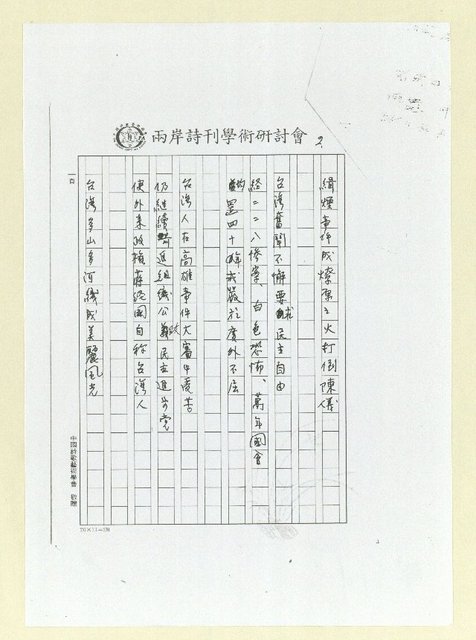 兩岸詩刊學術研討會
2.
緝煙事件成燎原之火打倒陳儀
台灣奮鬥不懈要求民主自由
經二二八慘案、白色恐怖、萬年國會
四十年戒嚴於度外不屈
台灣人在高雄事件大審中受苦
仍繼續進組織公義民主進步黨
使外來政權蔣經國自稱台灣人
台灣多山多河織成美麗風光
一頁
中國詩歌藝術學會 敬贈